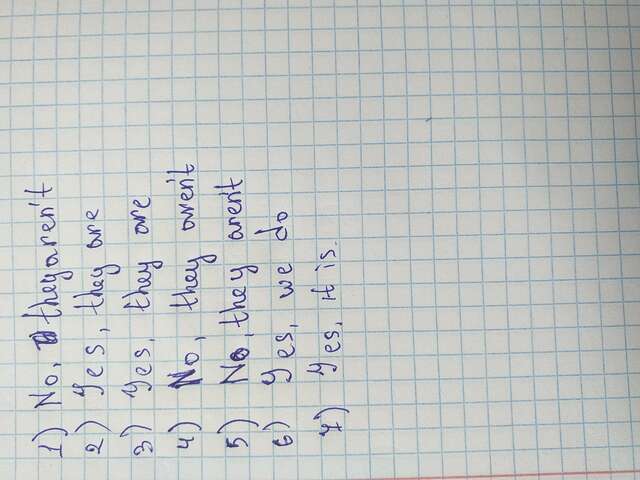 1) No, they aren't
2) Yes, they are
3) Yes, they are
4) No, they aren't
5) No, they aren't
6) Yes, we do
7) Yes, it is.